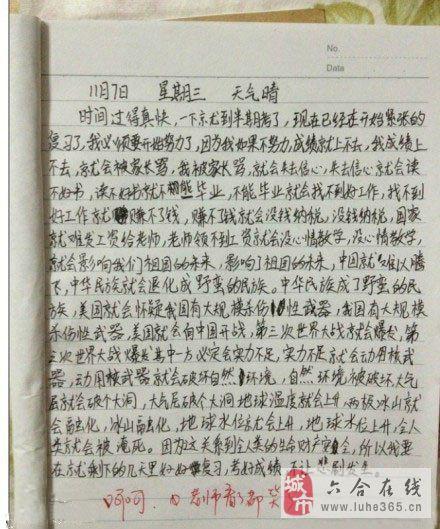 No.
Data
11月7日 星期三 天气晴
时间过得真快,一下京尤到半期考了,现在已经在开始紧张的
复习了,我必须要开始努力了,因为我如果不努力,成绩就上不去,我成绩上
不去,就会被家长骂,我被家长骂,就会失去信心,失去信心就会读
不好书,读不好书就不能毕业,不能毕业就会找不到好工作,找不到
好工作就赚不了钱,赚不了钱就会没钱纳税,没钱纳税,国家
就难发工资给老师,老师领不到工资就会没心情教学,没心情教学,
就会影响我们祖国的未来,影响了祖国的未来,中国就难以腾
飞,中华民族就会退化成野蛮的民族。中华民族成了野蛮的民
族,美国就会怀疑我国有大规模杀伤性武器,我国有大规模
杀伤性武器,美国就会向中国开战,第三次世界大战就会爆发,第
三次世界大战爆发其中一方必定会实力不足,实力不足就会动用核武
器,动用核武器就会破坏自然环境,自然环境被破坏大气
层就会破个大洞,大气层破个大洞地球温度就会上升,两极冰山就
会融化,冰山融化,地球水位就会上升,地球水位上升,全人
类就会被淹死。因为这关系到全人类的生命财产安全,所以我要
在就剩下的几天里好好复习,考好成绩,不让悲剧发生。
呵呵, 老师看了都笑
城市
六合在线
www.luhe365.cn